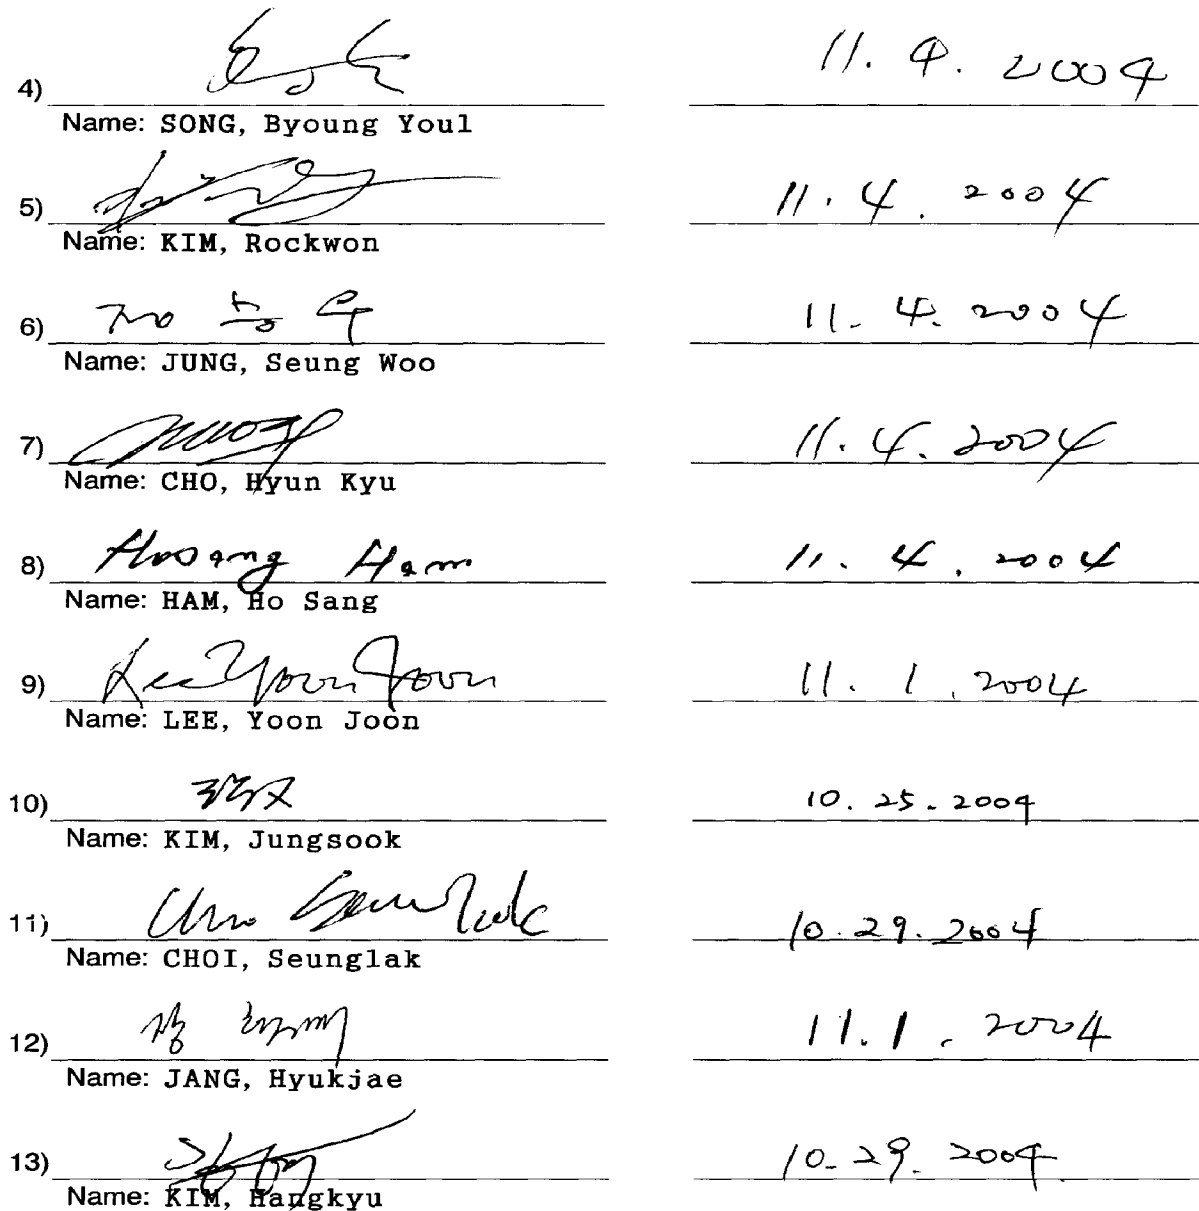 4) 11. 4. 2004
Name: SONG, Byoung Youl
5) 11. 4. 2004
Name: KIM, Rockwon
6) 정 승 우 11. 4. 2004
Name: JUNG, Seung Woo
7) 11. 4. 2004
Name: CHO, Hyun Kyu
8) Hosang Ham 11. 4. 2004
Name: HAM, Ho Sang
9) Lee Yoon Joon 11. 1. 2004
Name: LEE, Yoon Joon
10) 10. 25. 2004
Name: KIM, Jungsook
11) 10. 29. 2004
Name: CHOI, Seunglak
12) 11. 1. 2004
Name: JANG, Hyukjae
13) 10. 29. 2004
Name: KIM, Hangkyu